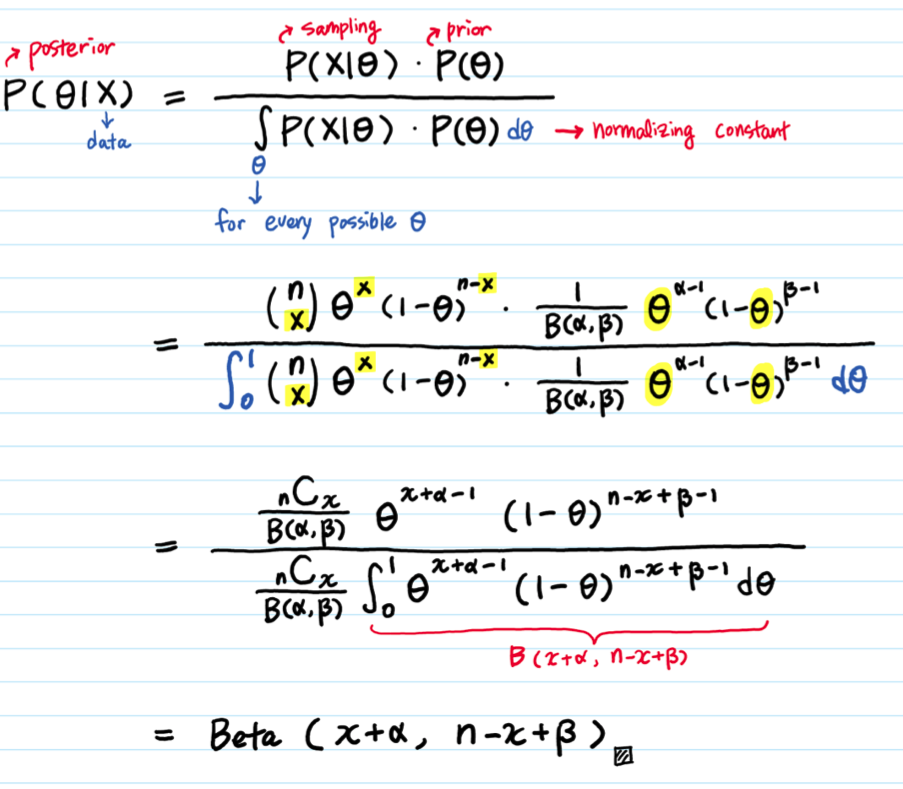 ↗ posterior
↗ sampling ↗ prior
P(θ|X) = P(X|θ) · P(θ) / ∫_θ P(X|θ) · P(θ) dθ → normalizing constant
↓ data
↓
for every possible θ
= (n x) θ^x (1-θ)^(n-x) · 1/B(α,β) θ^(α-1) (1-θ)^(β-1) / ∫_0^1 (n x) θ^x (1-θ)^(n-x) · 1/B(α,β) θ^(α-1) (1-θ)^(β-1) dθ
= nCx/B(α,β) θ^(x+α-1) (1-θ)^(n-x+β-1) / nCx/B(α,β) ∫_0^1 θ^(x+α-1) (1-θ)^(n-x+β-1) dθ
B(x+α, n-x+β)
= Beta (x+α, n-x+β)